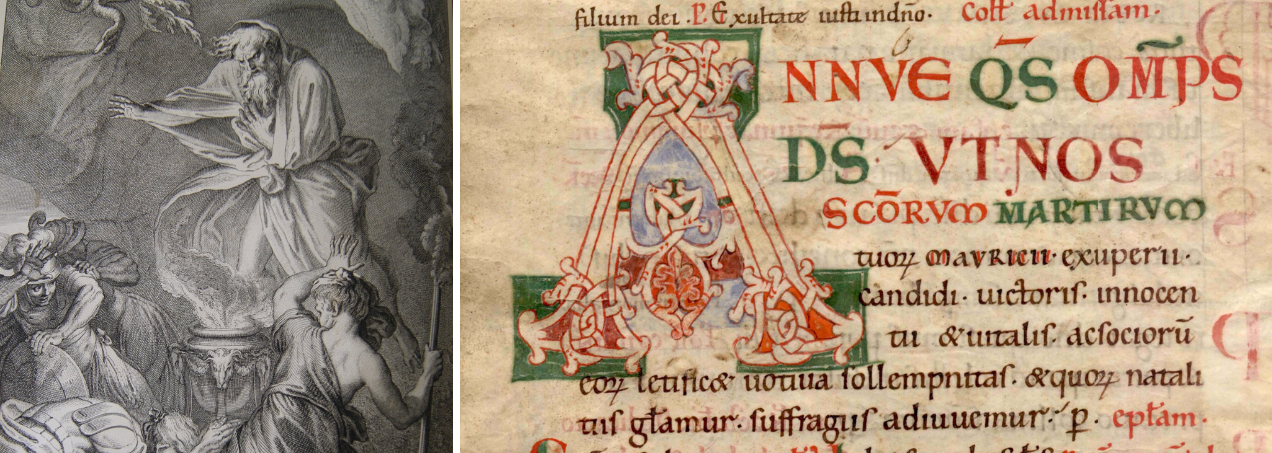 filium dei. P. Exultate iusti indño. Coɫɫ admissam.
ANNVE Q̄S OM̄PS
D̄S. VT NOS
SCŌRVM MARTIRVM
tuoꝝ MAVRICII. exuperii.
candidi. uictoris. innocen
tii &uitalis. acsociorū
eoꝝ letific& uotiua sollempnitas. &quoꝝ natali
tiis gɫamur. suffragiis adiuuemur. p̱. epɫam.